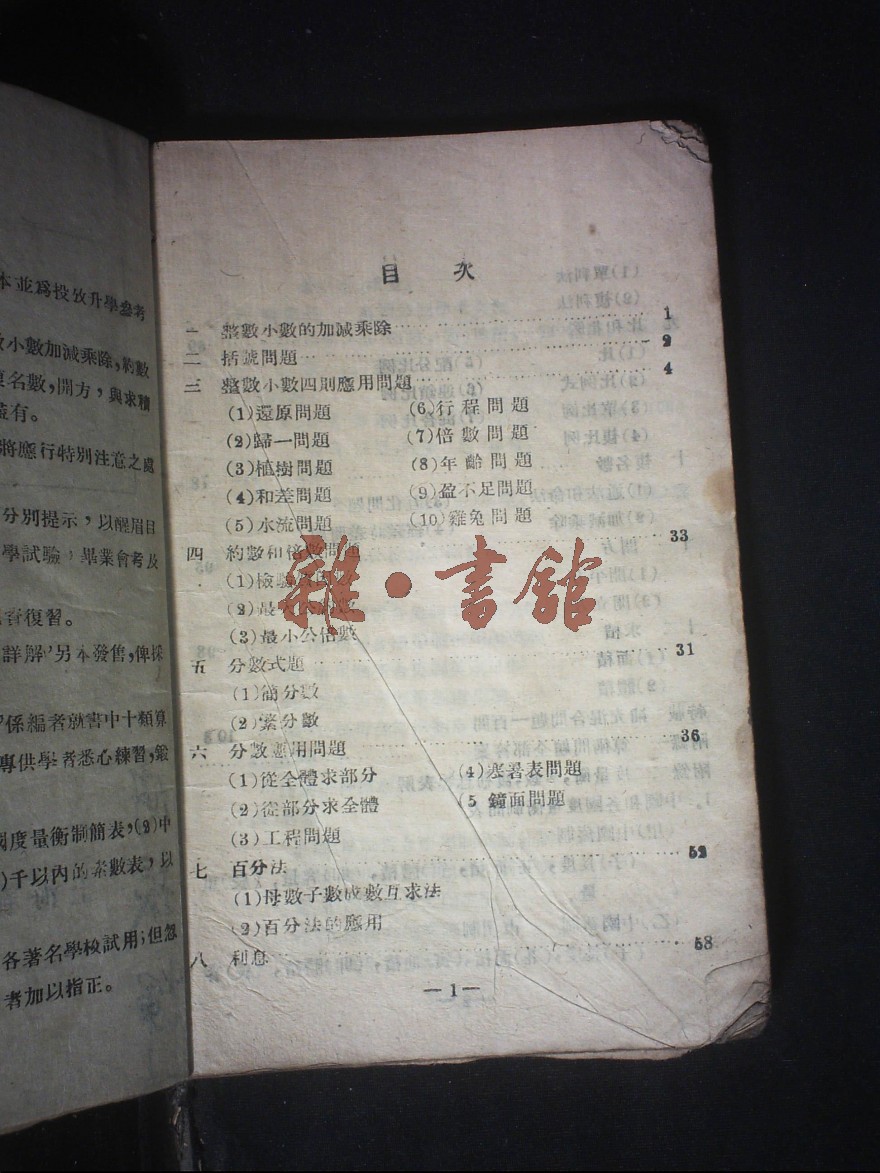 本並爲投攷升學參考
小數加減乘除,約數
名數,開方,與求積
將應行特別注意之處
分別提示,以醒眉目
學試驗,畢業會考及
復習。
詳解」另本發售,俾採
係編者就書中十類算
專供學者悉心練習,鍛
度量衡制簡表,(2)中
千以內的素數表,以
各著名學校試用;但忽
者加以指正。
目 次
一 整數小數的加減乘除 1
二 括號問題 2
三 整數小數四則應用問題 4
(1)還原問題 (6)行程問題
(2)歸一問題 (7)倍數問題
(3)植樹問題 (8)年齡問題
(4)和差問題 (9)盈不足問題
(5)水流問題 (10)雞兔問題
四 約數和倍數問題 33
(1)檢驗
(2)最大公約數
(3)最小公倍數
五 分數式題 31
(1)簡分數
(2)繁分數
六 分數應用問題 36
(1)從全體求部分 (4)寒暑表問題
(2)從部分求全體 (5 鐘面問題
(3)工程問題
七 百分法 52
(1)母數子數成數互求法
(2)百分法的應用
八 利息 58
—1—
雜·書館